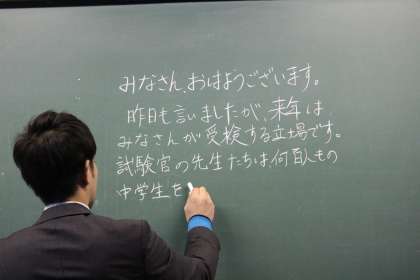 みなさん、おはようございます。
昨日も言いましたが、来年は、
みなさんが受検する立場です。
試験官の先生たちは、何百人もの
中学生を